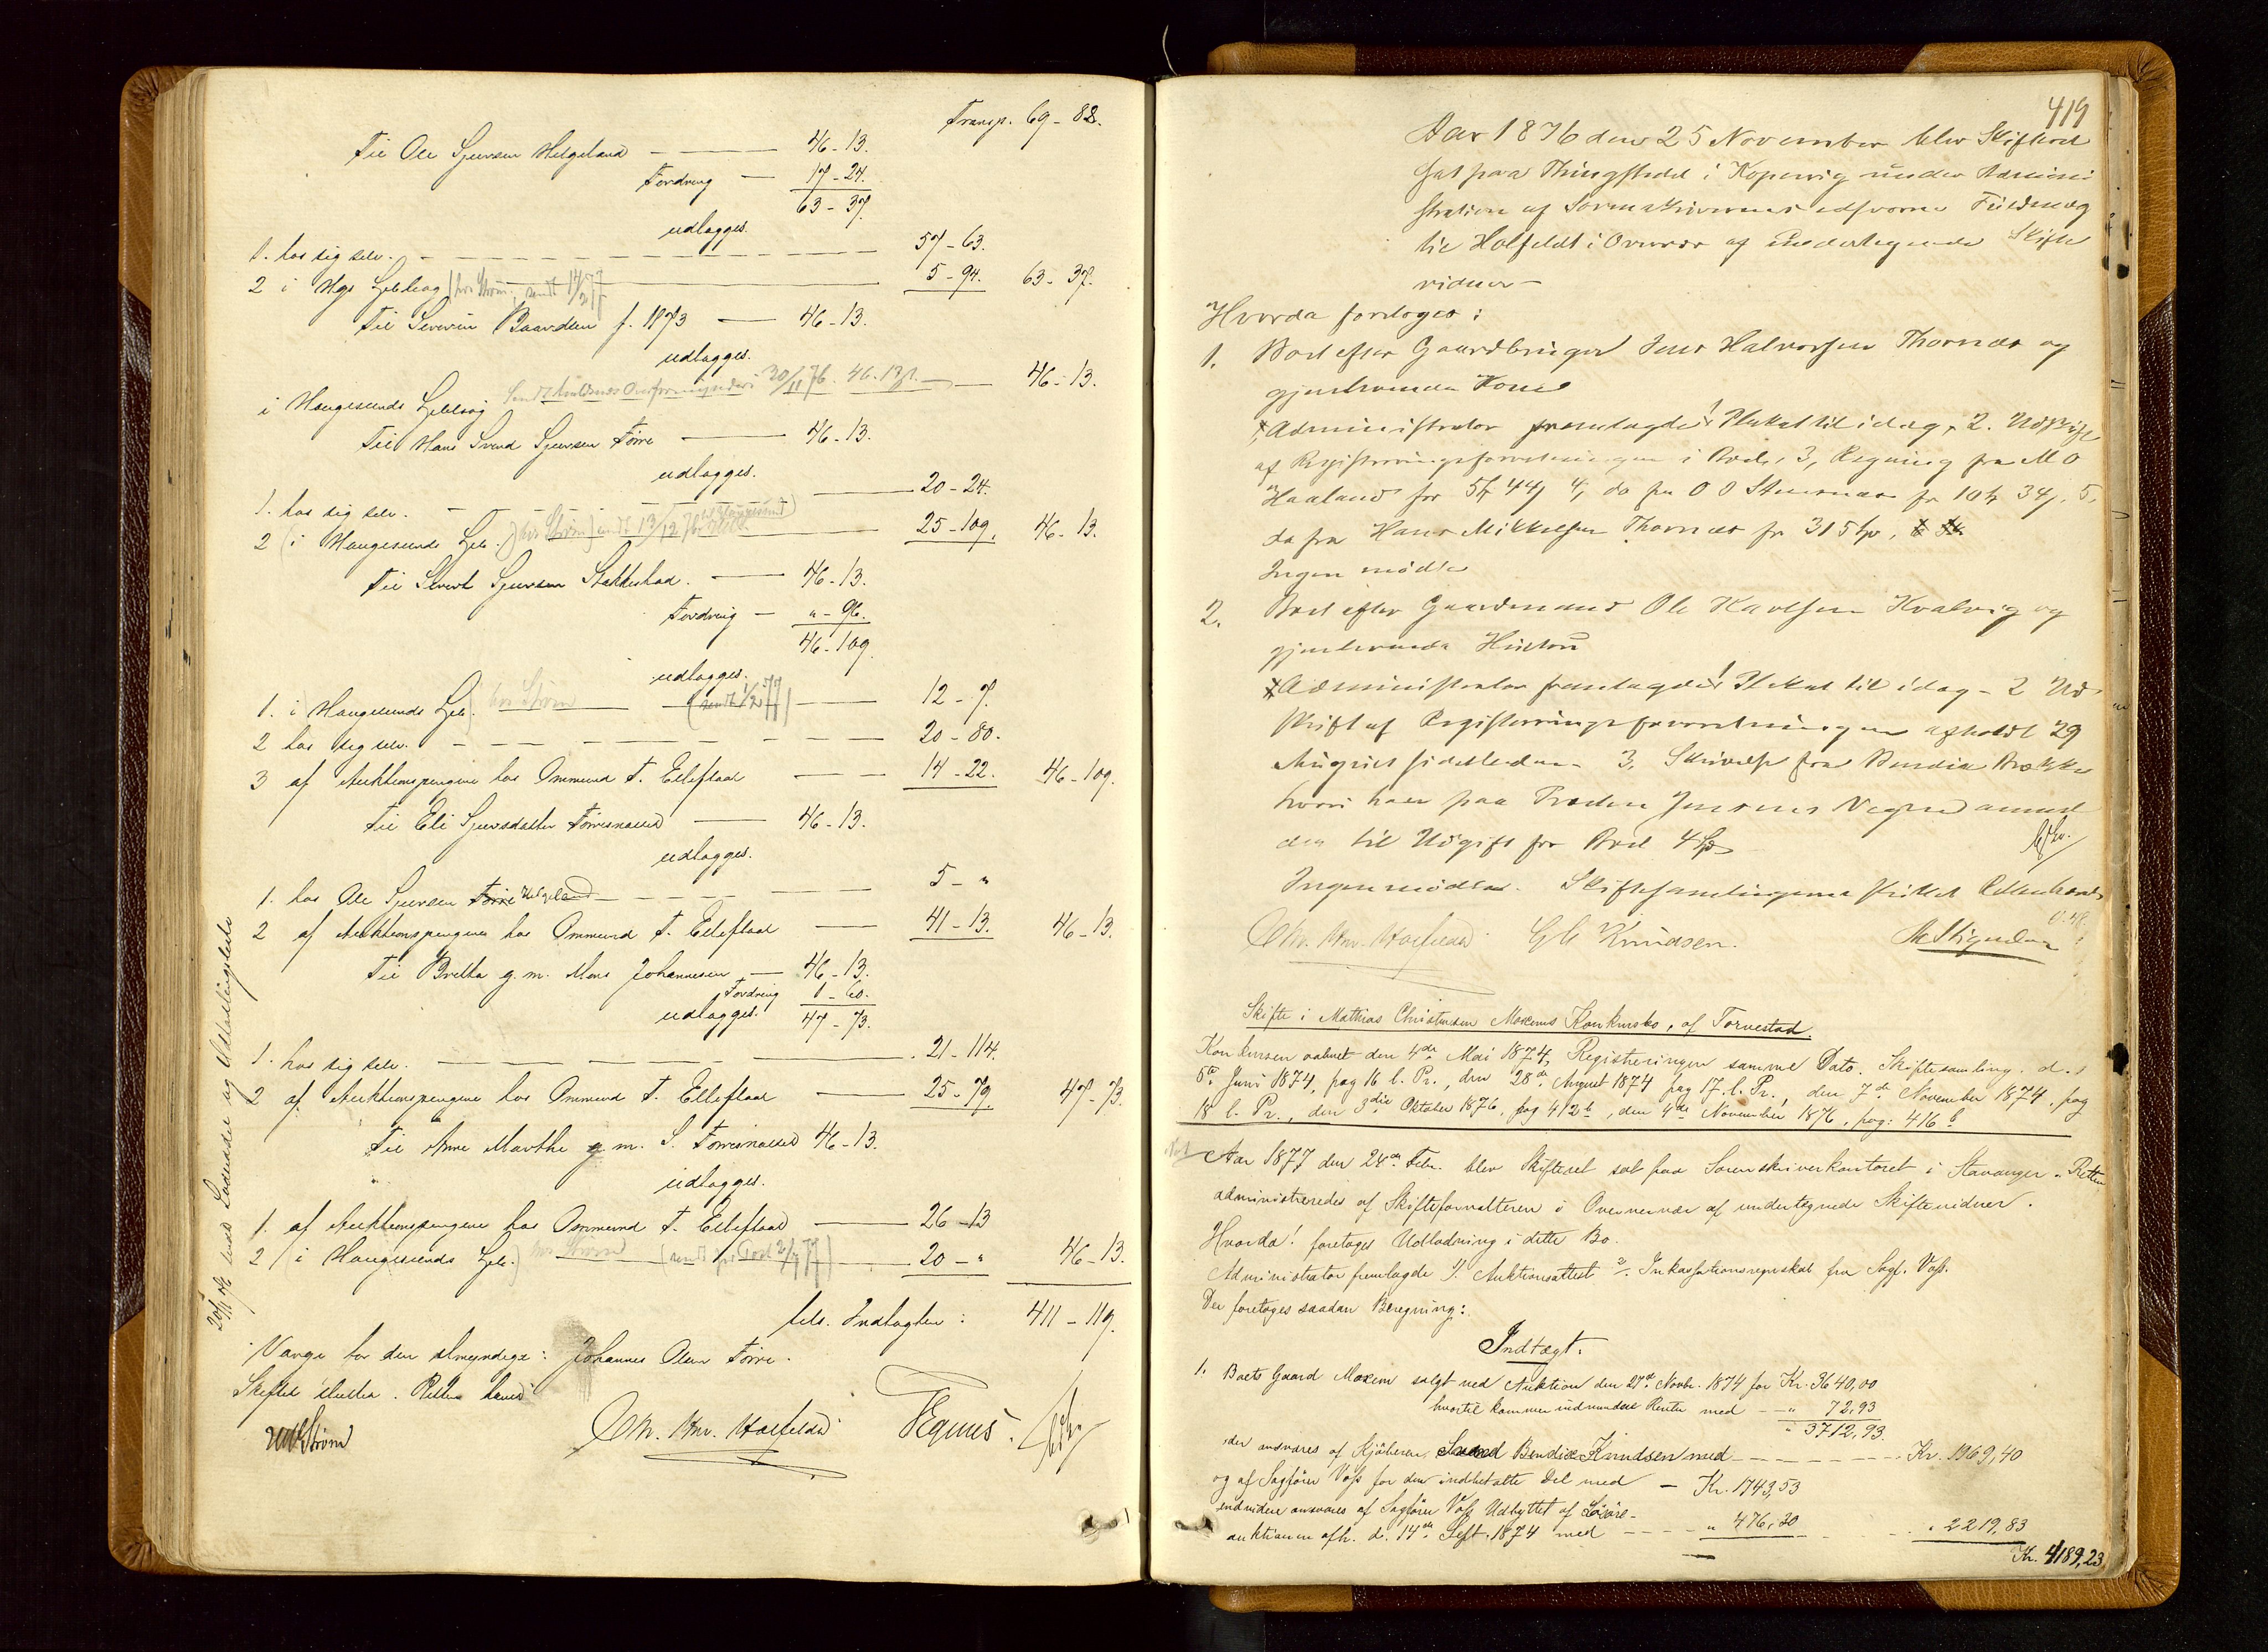 Transp. 69 - 88.
Til Ole Sjursen Helgeland — 46 - 13.
Fordring — 17 - 24.
63 - 37.
udlægges.
1. hos sig selv. — 57 - 63.
2 i Hgs Lyst — 5 - 94. 63 - 37.
Til Severin Baardsen f. 1873 — 46 - 13.
udlægges.
i Haugesunds 30/11 76. 46 - 13 — 46 - 13.
Til Hans Svend Sjursen Førre — 46 - 13.
udlægges.
1. hos sig selv. — 20 - 24.
2 (i Haugesunds (hos Strøm) sendt 13/12 76 — 25 - 109. 46 - 13.
Til Sivert Sjursen Stakkestad. — 46 - 13.
Fordring — " - 96.
46 - 109
udlægges.
1. i Haugesunds hos Strøm (sendt 1/2 77) — 12 - 7.
2 hos sig selv. — 20 - 80.
3 af Auktionspengene hos Ommund T. Eelleflaat — 14 - 22. 46 - 109.
Til Eli Sjursdatter Førresnæsset — 46 - 13.
udlægges.
1. hos Ole Sjursen Førre Helgeland — 5 - "
2 af Auktionspengene hos Ommund T. Eelleflaat — 41 - 13. 46 - 13.
Til Britha g. m. Mons Johannesen — 46 - 13.
Fordring 1 - 60.
udlægges. 47 - 73.
1. hos sig selv. — 21 - 114.
2 af Auktionspengene hos Ommund T. Eelleflaat — 25 - 79. 47 - 73.
Til Anne Marthe g. m. S. Førresnæsset 46 - 13.
udlægges.
1. af Auktionspengene hos Ommund T. Eelleflaat — 26 - 13
2 (i Haugesunds hos Strøm (sendt pr Post 2/4 77) — 20 - " 46 - 13.
lig Indtægten: 411 - 119.
Værge for den umyndige: Johannes Olsen Førre.
Skiftet sluttet. Retten hævet
Strøm Chr. Hmr. Hoelfeldt
419
Aar 1876 den 25 November blev Skifteret
sat paa Thingstedet i Kopervig under Admini
stration af Sorenskriverens edsvorne Fuldmæg
tig Holfeldt i Overvær af undertegnede Skifte
vidner —
Hvorda foretoges:
1. Boet efter Gaardbruger Jens Halvorsen Thornæs og
gjenlevende Kone
Administrator fremlagde 1 Plakat til idag, 2. Udskrift
af Registreringsforretningen i Boet, 3, Regning fra M O
Haaland for 5 44 4, do fra O O for 10 34, 5.
do fra Hans Mikkelsen Thornæs for 315
Ingen mødte
2. Boet efter Gaardmand Ole Karlsen Kvalvig og
gjenlevende Hustru
Administrator fremlagde 1 Plakat til idag - 2 Ud
skrift af Registreringsforretningen afholdt 29
August sidstleden 3, Skrivelse fra
hvori han paa Jensens Vegne anmel
der til Udgift for Boet 4
Ingen mødte. Skiftesamlingerne sluttet Retten hævet
Chr. Hmr. Hoelfeldt Gb Knudsen.
Skifte i Mathias Christensen Moxens Konkursbo, af Torvestad.
Konkursen aabnet den 4de Mai 1874, Registreringen samme Dato. Skiftesamling. d.
6te Juni 1874, pag 16 l. Pr., den 28de August 1874 pag 17 l. Pr., den 7de November 1874, pag
18 l. Pr., den 3die Oktober 1876, pag 412b, den 4de November 1876, pag: 416b
Aar 1877 den 24de Febr. blev Skifteret sat paa Sorenskriverkontoret i Stavanger. Retten
administreredes af Skifteforvalteren i Overværelse af undertegnede Skiftevidner.
Hvorda! foretoges Udlodning i dette Bo.
Administrator fremlagde 1/. Auktionsattest 2/. Inkassationsregnskab fra Sagf. Voss.
Der foretoges saadan Beregning:
Indtægt.
1. Boets Gaard Moxen solgt ved Auktion den 27de Novbr. 1874 for Kr. 3640,00
hvortil kommer indvundne Renter med — " 72,93
" 3712,93
der ansvares af Kjøberen Svend Bendix Knudsen med — Kr. 1969,40
og af Sagfører Voss for den indbetalte Del med — Kr. 1743,53
endvidere ansvares af Sagfører Voss Udbyttet af Løsøre-
auktionen afh. d. 14de Sept. 1874 med — " 476,30 " 2219,83
Kr. 4189,23